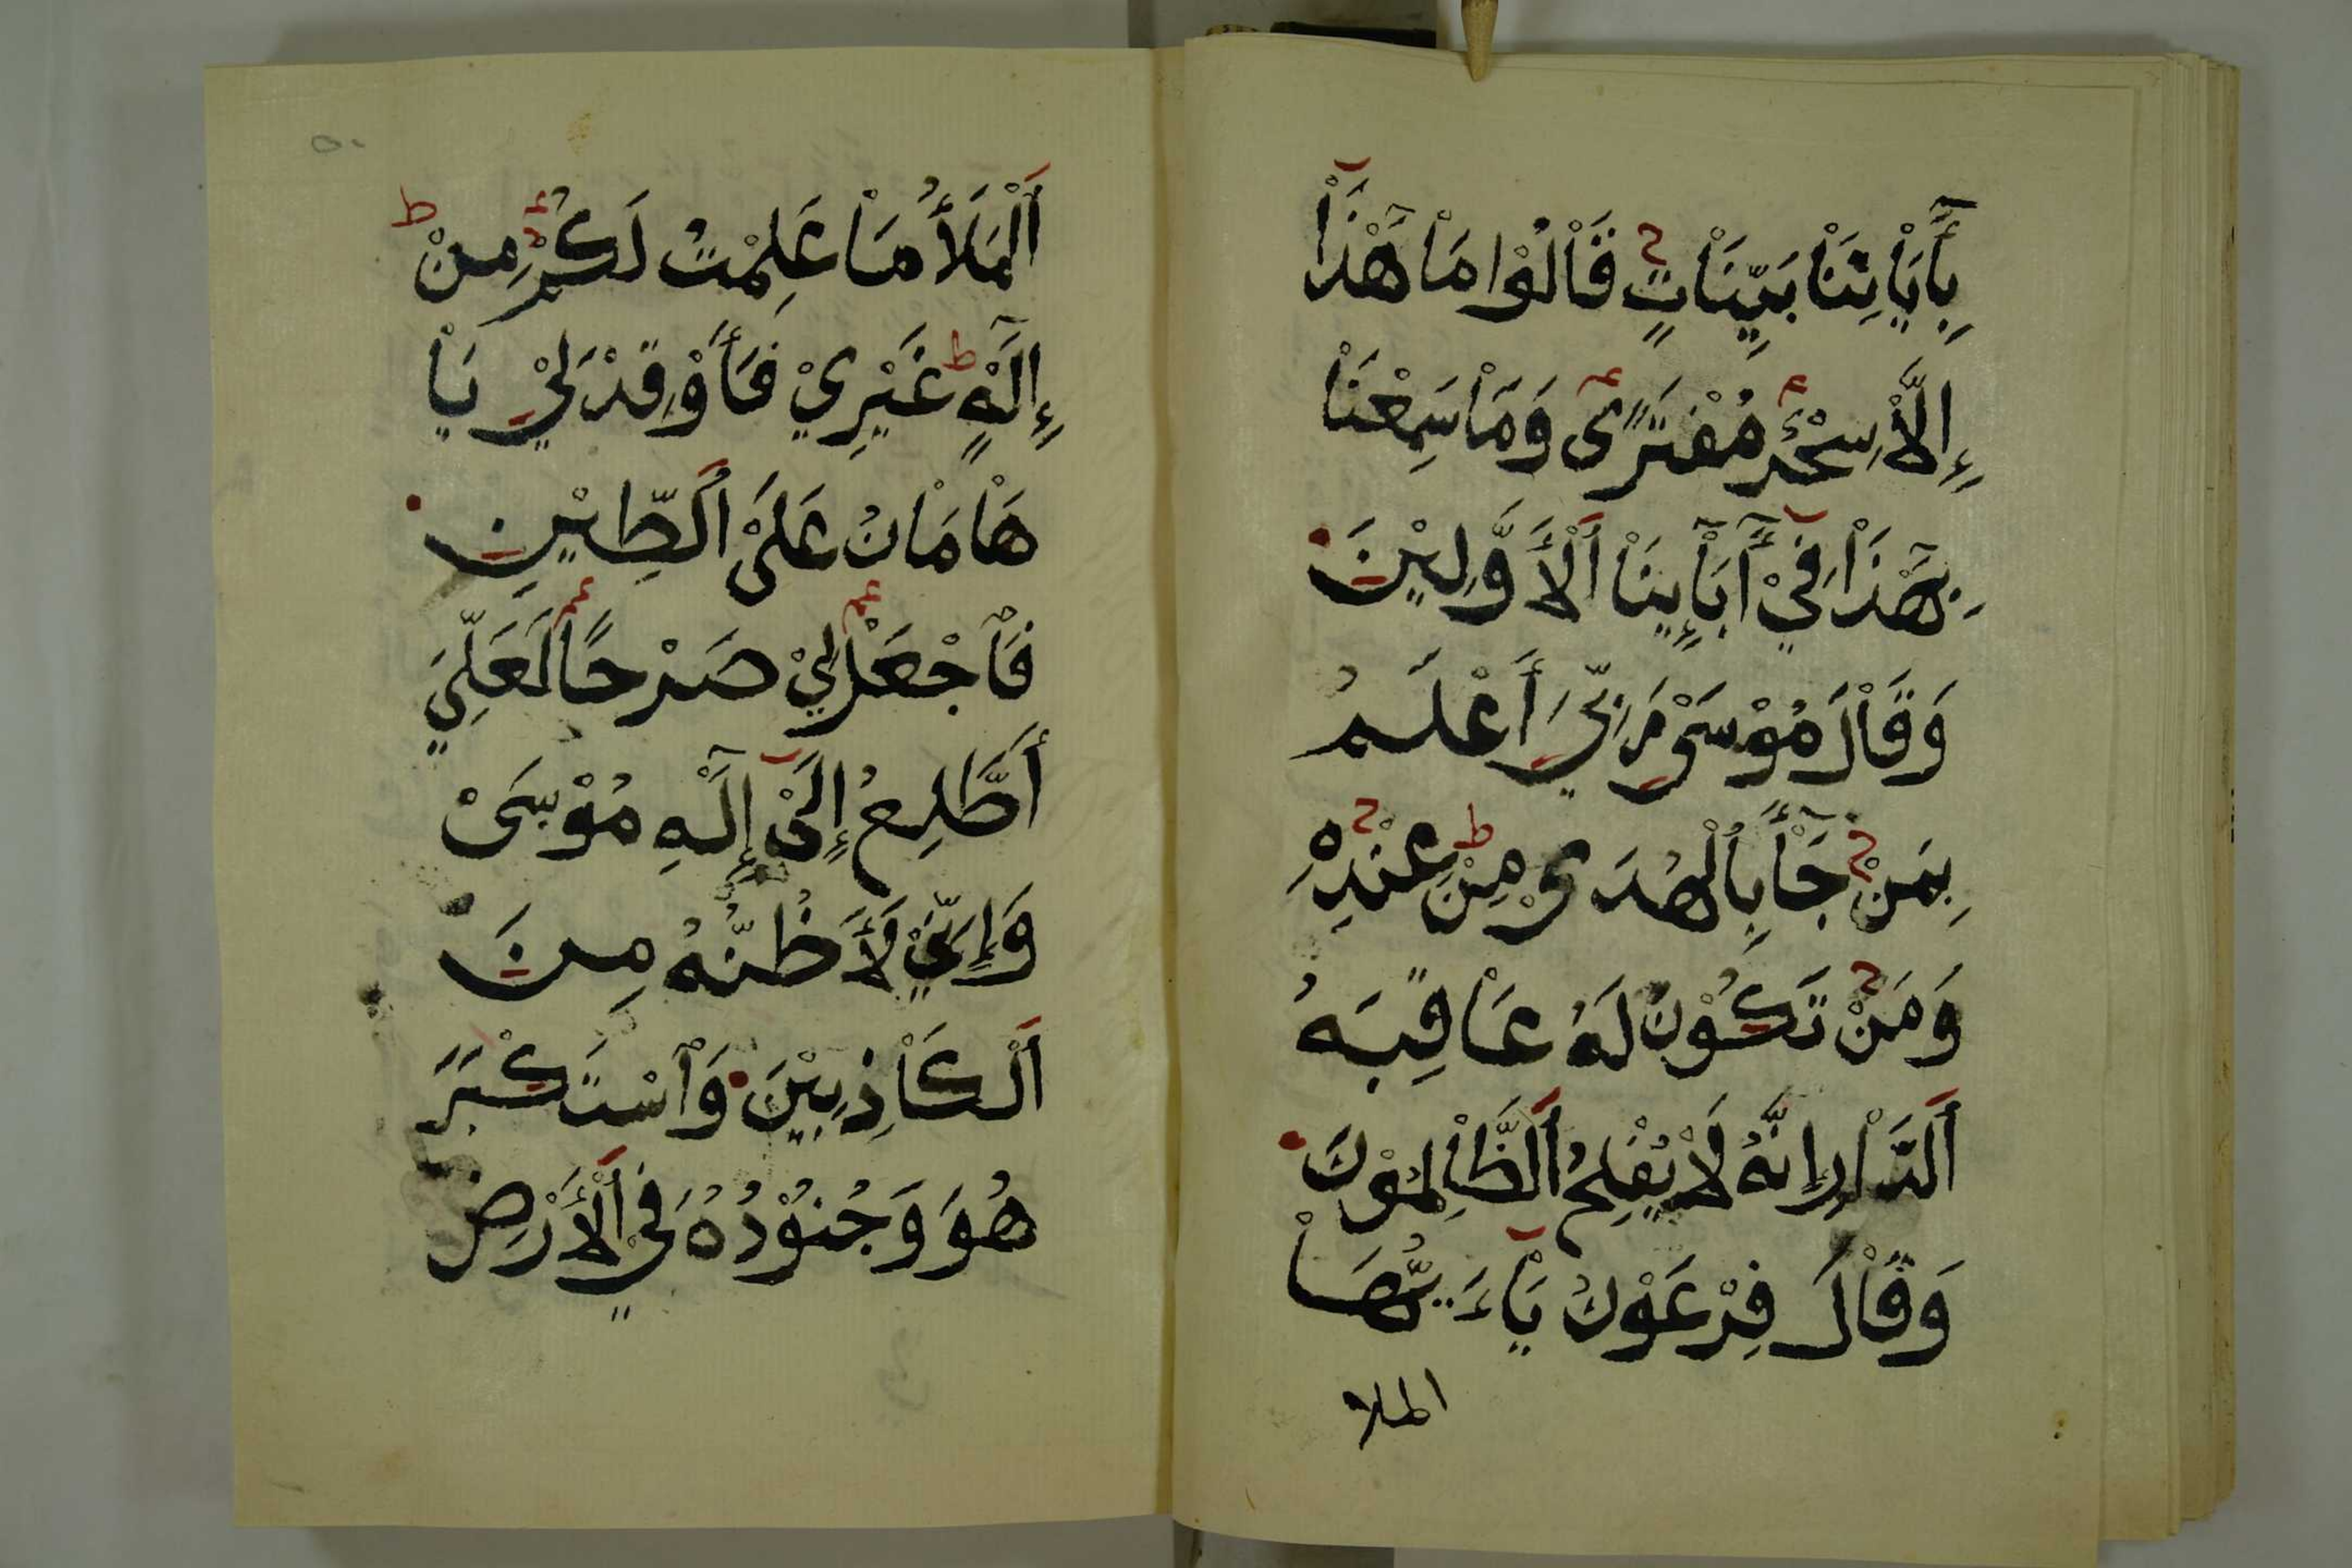 بِأٓيَاْتِنَاْ بَيِّنَاْتٍ قَاْلُوْا مَاْ هَٰذَاْ
إِلَّاْ سِحْرٌ مُفْتَرًى وَمَاْ سَمِعْنَاْ
بِهَٰذَاْ فِيْ أٓبَاْئِنَاْ اَلْأَوَّلِيْنَ
وَقَاْلَ مُوْسَىْ رَبِّيَ أَعْلَمُ
بِمَنْ جَاْءَ بِاُلْهُدَىْ مِنْ عِنْدِهِ
وَمَنْ تَكُوْنُ لَهُ عَاْقِبَةُ
اَلدَّاْرِ إِنَّهُ لَاْ يُفْلِحُ اَلظَّاْلِمُوْنَ
وَقَاْلَ فِرْعَوْنُ يَاْءَيُّهَاْ
الملا
٥٠
اَلْمَلَأُ مَاْ عَلِمْتُ لَكُمْ مِنْ
إِلَٰهٍ غَيْرِيْ فَأَوْقِدْ لِيْ يَاْ
هَاْمَاْنُ عَلَىْ اَلطِّيْنِ
فَاْجْعَلْ لِيْ صَرْحًا لَعَلِّيَ
أَطَّلِعُ إِلَىْ إِلَٰهِ مُوْسَىْ
وَإِنِّيْ لَأَظُنُّهُ مِنَ
اَلْكَاْذِبِيْنَ وَاْسْتَكْبَرَ
هُوَ وَجُنُوْدُهُ فِيْ اَلْأَرْضِ